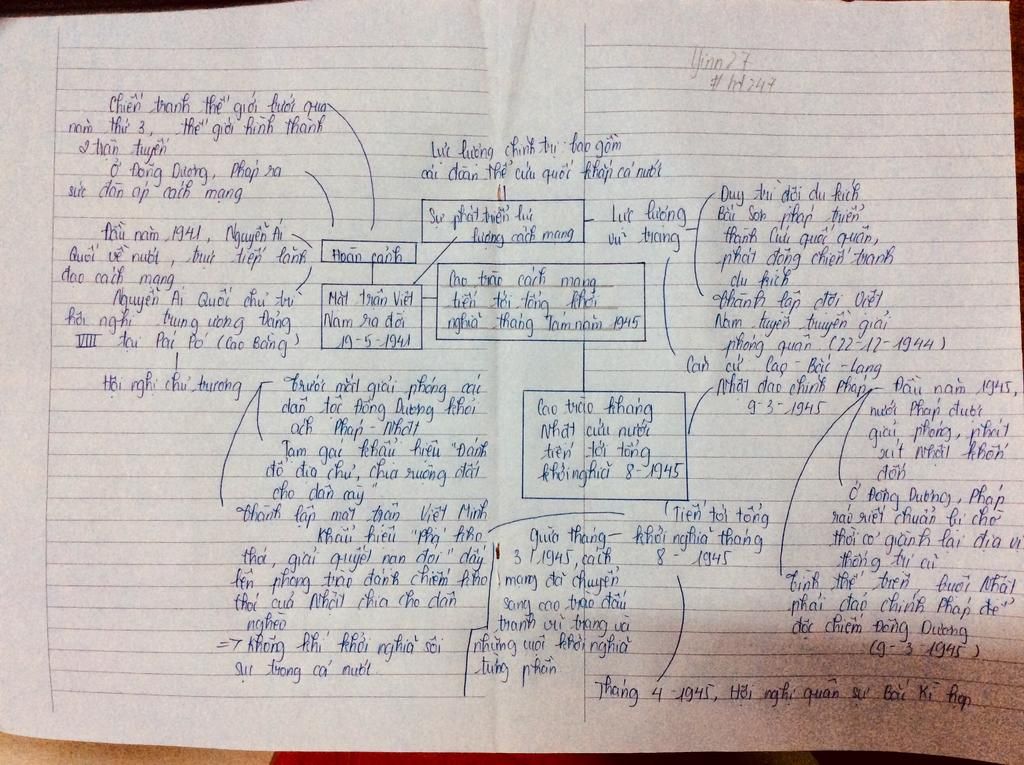 Yinn27
#hd247
Chiến tranh thế giới bước qua
năm thứ 3, thế giới hình thành
2 trận tuyến
Ở Đông Dương, Pháp ra
sức đàn áp cách mạng
Đầu năm 1941, Nguyễn Ái
Quốc về nước, trực tiếp lãnh
đạo cách mạng
Nguyễn Ái Quốc chủ trì
hội nghị trung ương Đảng
VIII tại Pác Pó (Cao Bằng)
Hoàn cảnh
Mặt trận Việt
Nam ra đời
19-5-1941
Cao trào cách mạng
tiến tới tổng khởi
nghĩa tháng Tám năm 1945
Sự phát triển lực
lượng cách mạng
Lực lượng chính trị: bao gồm
các đoàn thể cứu quốc khắp cả nước
Lực lượng
vũ trang
Duy trì đội du kích
Bắc Sơn phát triển
thành Cứu quốc quân,
phát động chiến tranh
du kích
Thành lập đội Việt
Nam tuyên truyền giải
phóng quân (22-12-1944)
Căn cứ Cao - Bắc - Lạng
Hội nghị chủ trương
Trước mắt giải phóng các
dân tộc Đông Dương khỏi
ách Pháp - Nhật
Tạm gác khẩu hiệu "Đánh
đổ địa chủ, chia ruộng đất
cho dân cày"
Thành lập mặt trận Việt Minh
Khẩu hiệu "Phá kho
thóc, giải quyết nạn đói" dấy
lên phong trào đánh chiếm kho
thóc của Nhật chia cho dân
nghèo
=> Không khí khởi nghĩa sôi
sục trong cả nước
Cao trào kháng
Nhật cứu nước
tiến tới tổng
khởi nghĩa 8-1945
Nhật đảo chính Pháp
9-3-1945
Đầu năm 1945,
nước Pháp được
giải phóng, phát
xít Nhật khốn
đốn
Ở Đông Dương, Pháp
ráo riết chuẩn bị chờ
thời cơ giành lại địa vị
thống trị cũ
Tình thế trên buộc Nhật
phải đảo chính Pháp để
độc chiếm Đông Dương
(9-3-1945)
Tiến tới tổng
khởi nghĩa tháng
8 1945
Giữa tháng
3/1945, cách
mạng đã chuyển
sang cao trào đấu
tranh vũ trang và
những cuộc khởi nghĩa
từng phần
Tháng 4-1945, Hội nghị quân sự Bắc Kì họp